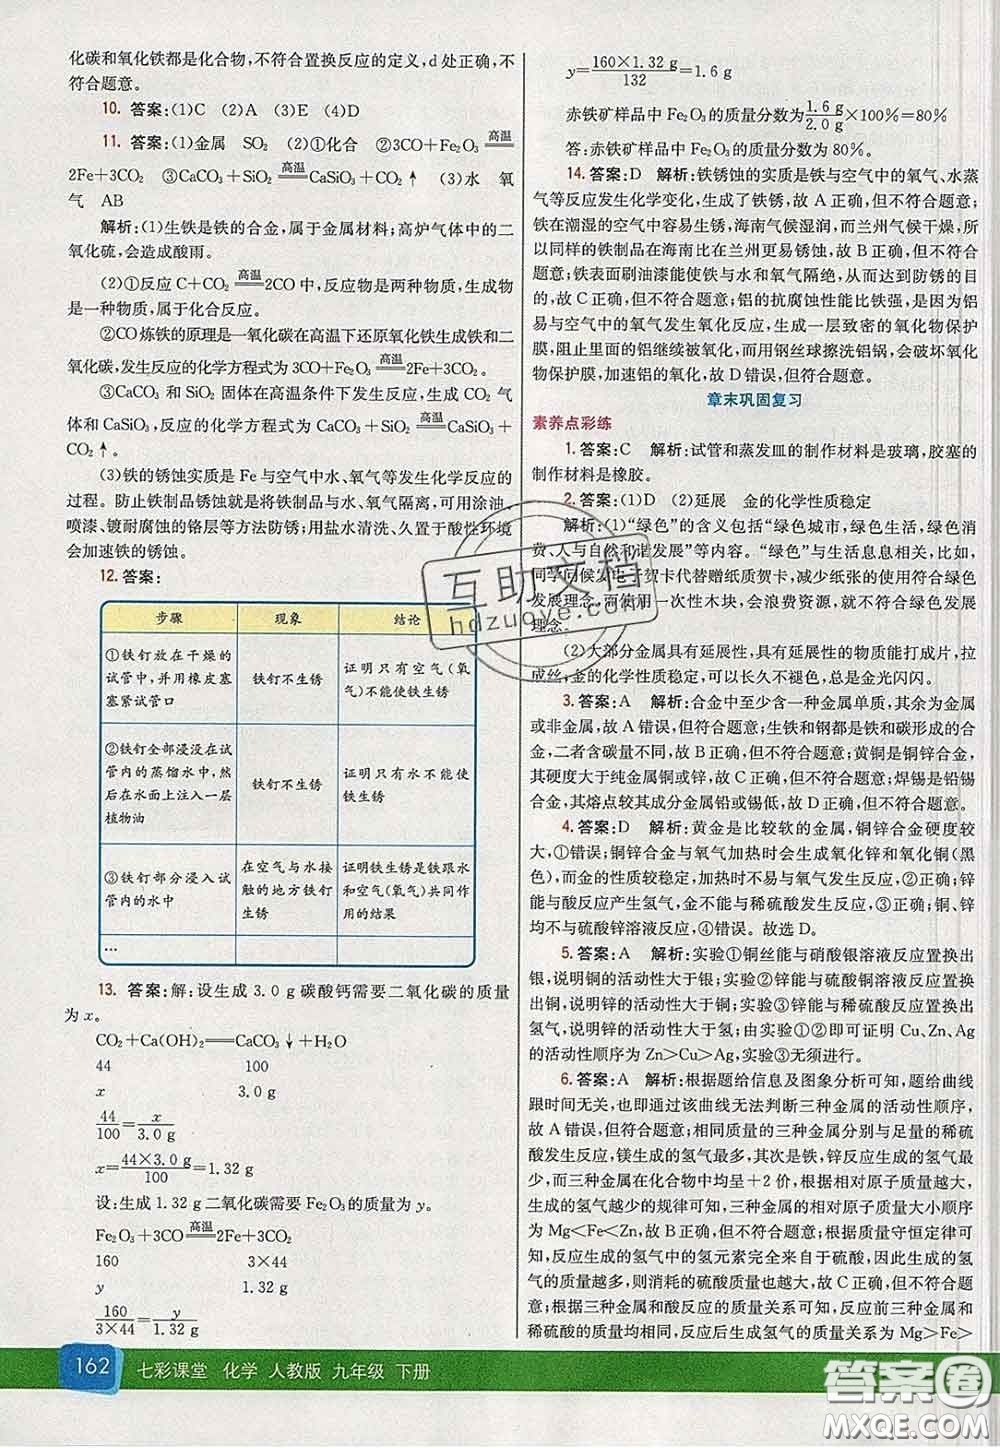 化碳和氧化铁都是化合物,不符合置换反应的定义,d处正确,不
符合题意。
10. 答案:(1)C (2)A (3)E (4)D
11. 答案:(1)金属 SO₂ (2)①化合 ②3CO+Fe₂O₃ 高温
2Fe+3CO₂ ③CaCO₃+SiO₂ 高温 CaSiO₃+CO₂↑ (3)水 氧
气 AB
解析:(1)生铁是铁的合金,属于金属材料;高炉气体中的二
氧化硫,会造成酸雨。
(2)①反应 C+CO₂ 高温 2CO 中,反应物是两种物质,生成物
是一种物质,属于化合反应。
②CO炼铁的原理是一氧化碳在高温下还原氧化铁生成铁和二
氧化碳,发生反应的化学方程式为3CO+Fe₂O₃ 高温 2Fe+3CO₂。
③CaCO₃ 和 SiO₂ 固体在高温条件下发生反应,生成 CO₂ 气
体和 CaSiO₃,反应的化学方程式为 CaCO₃+SiO₂ 高温 CaSiO₃+
CO₂↑。
(3)铁的锈蚀实质是 Fe 与空气中水、氧气等发生化学反应的
过程。防止铁制品锈蚀就是将铁制品与水、氧气隔离,可用涂油、
喷漆、镀耐腐蚀的铬层等方法防锈;用盐水清洗、久置于酸性环境
会加速铁的锈蚀。
12. 答案:
步骤 现象 结论
①铁钉放在干燥的
试管中,并用橡皮塞
塞紧试管口
铁钉不生锈
证明只有空气(氧
气)不能使铁生锈
②铁钉全部浸没在试
管内的蒸馏水中,然
后在水面上注入一层
植物油
铁钉不生锈
证明只有水不能使
铁生锈
③铁钉部分浸入试
管内的水中
在空气与水接
触的地方铁钉
生锈
证明铁生锈是铁跟水
和空气(氧气)共同作
用的结果
…
13. 答案:解:设生成 3.0 g 碳酸钙需要二氧化碳的质量
为 x。
CO₂+Ca(OH)₂══CaCO₃↓+H₂O
44 100
x 3.0 g
44/100=x/3.0 g
x=44×3.0 g/100=1.32 g
设:生成 1.32 g 二氧化碳需要 Fe₂O₃ 的质量为 y。
Fe₂O₃+3CO 高温 2Fe+3CO₂
160 3×44
y 1.32 g
160/3×44=y/1.32 g
162 七彩课堂 化学 人教版 九年级 下册
y=160×1.32 g/132=1.6 g
赤铁矿样品中 Fe₂O₃ 的质量分数为 1.6 g/2.0 g×100%=80%
答:赤铁矿样品中 Fe₂O₃ 的质量分数为 80%。
14. 答案:D 解析:铁锈蚀的实质是铁与空气中的氧气、水蒸
气等反应发生化学变化,生成了铁锈,故 A 正确,但不符合题意;
铁在潮湿的空气中容易生锈,海南气候湿润,而兰州气候干燥,所
以同样的铁制品在海南比在兰州更易锈蚀,故 B 正确,但不符合
题意;铁表面刷油漆能使铁与水和氧气隔绝,从而达到防锈的目
的,故 C 正确,但不符合题意;铝的抗腐蚀性能比铁强,是因为铝
易与空气中的氧气发生氧化反应,生成一层致密的氧化物保护
膜,阻止里面的铝继续被氧化,而用钢丝球擦洗铝锅,会破坏氧化
物保护膜,加速铝的氧化,故 D 错误,但符合题意。
章末巩固复习
素养点彩练
1. 答案:C 解析:试管和蒸发皿的制作材料是玻璃,胶塞的
制作材料是橡胶。
2. 答案:(1)D (2)延展 金的化学性质稳定
解析:(1)“绿色”的含义包括“绿色城市,绿色生活,绿色消
费、人与自然和谐发展”等内容。“绿色”与生活息息相关,比如,
同学间问候发电子贺卡代替赠纸质贺卡,减少纸张的使用符合绿色
发展理念,而使用一次性木块,会浪费资源,就不符合绿色发展
理念。
(2)大部分金属具有延展性,具有延展性的物质能打成片,拉
成丝,金的化学性质稳定,可以长久不褪色,总是金光闪闪。
3. 答案:A 解析:合金中至少含一种金属单质,其余为金属
或非金属,故 A 错误,但符合题意;生铁和钢都是铁和碳形成的合
金,二者含碳量不同,故 B 正确,但不符合题意;黄铜是铜锌合金,
其硬度大于纯金属铜或锌,故 C 正确,但不符合题意;焊锡是铅锡
合金,其熔点较其成分金属铅或锡低,故 D 正确,但不符合题意。
4. 答案:D 解析:黄金是比较软的金属,铜锌合金硬度较
大,①错误;铜锌合金与氧气加热时会生成氧化锌和氧化铜(黑
色),而金的性质较稳定,加热时不易与氧气发生反应,②正确;锌
能与酸反应产生氢气,金不能与稀硫酸发生反应,③正确;铜、锌
均不与硫酸锌溶液反应,④错误。故选 D。
5. 答案:A 解析:实验①铜丝能与硝酸银溶液反应置换出
银,说明铜的活动性大于银;实验②锌能与硫酸铜溶液反应置换
出铜,说明锌的活动性大于铜;实验③锌能与稀硫酸反应置换出
氢气,说明锌的活动性大于氢;由实验①②即可证明 Cu、Zn、Ag
的活动性顺序为 Zn>Cu>Ag,实验③无须进行。
6. 答案:A 解析:根据题给信息及图象分析可知,题给曲线
跟时间无关,也就通过该曲线无法判断三种金属的活动性顺序,
故 A 错误,但符合题意;相同质量的三种金属分别与足量的稀硫
酸发生反应,镁生成的氢气最多,其次是铁,锌生成的氢气最
少,三种金属在化合物中均呈+2 价,相对原子质量越大,
生成的氢气越少的规律可知,三种金属的相对原子质量大小顺序
为 Mg<Fe<Zn,故 B 正确,但不符合题意;根据质量守恒定律可
知,反应生成的氢气中的氢元素完全来自于硫酸,因此生成的氢
气的质量越多,则消耗的硫酸质量越大,故 C 正确,但不符合题
意;根据三种金属和酸反应的质量关系可知,反应前三种金属和
酸的质量均相同,反应后生成氢气的质量关系为 Mg>Fe>
互助文档
hdzuoye.com
答案圈
MXQE.COM